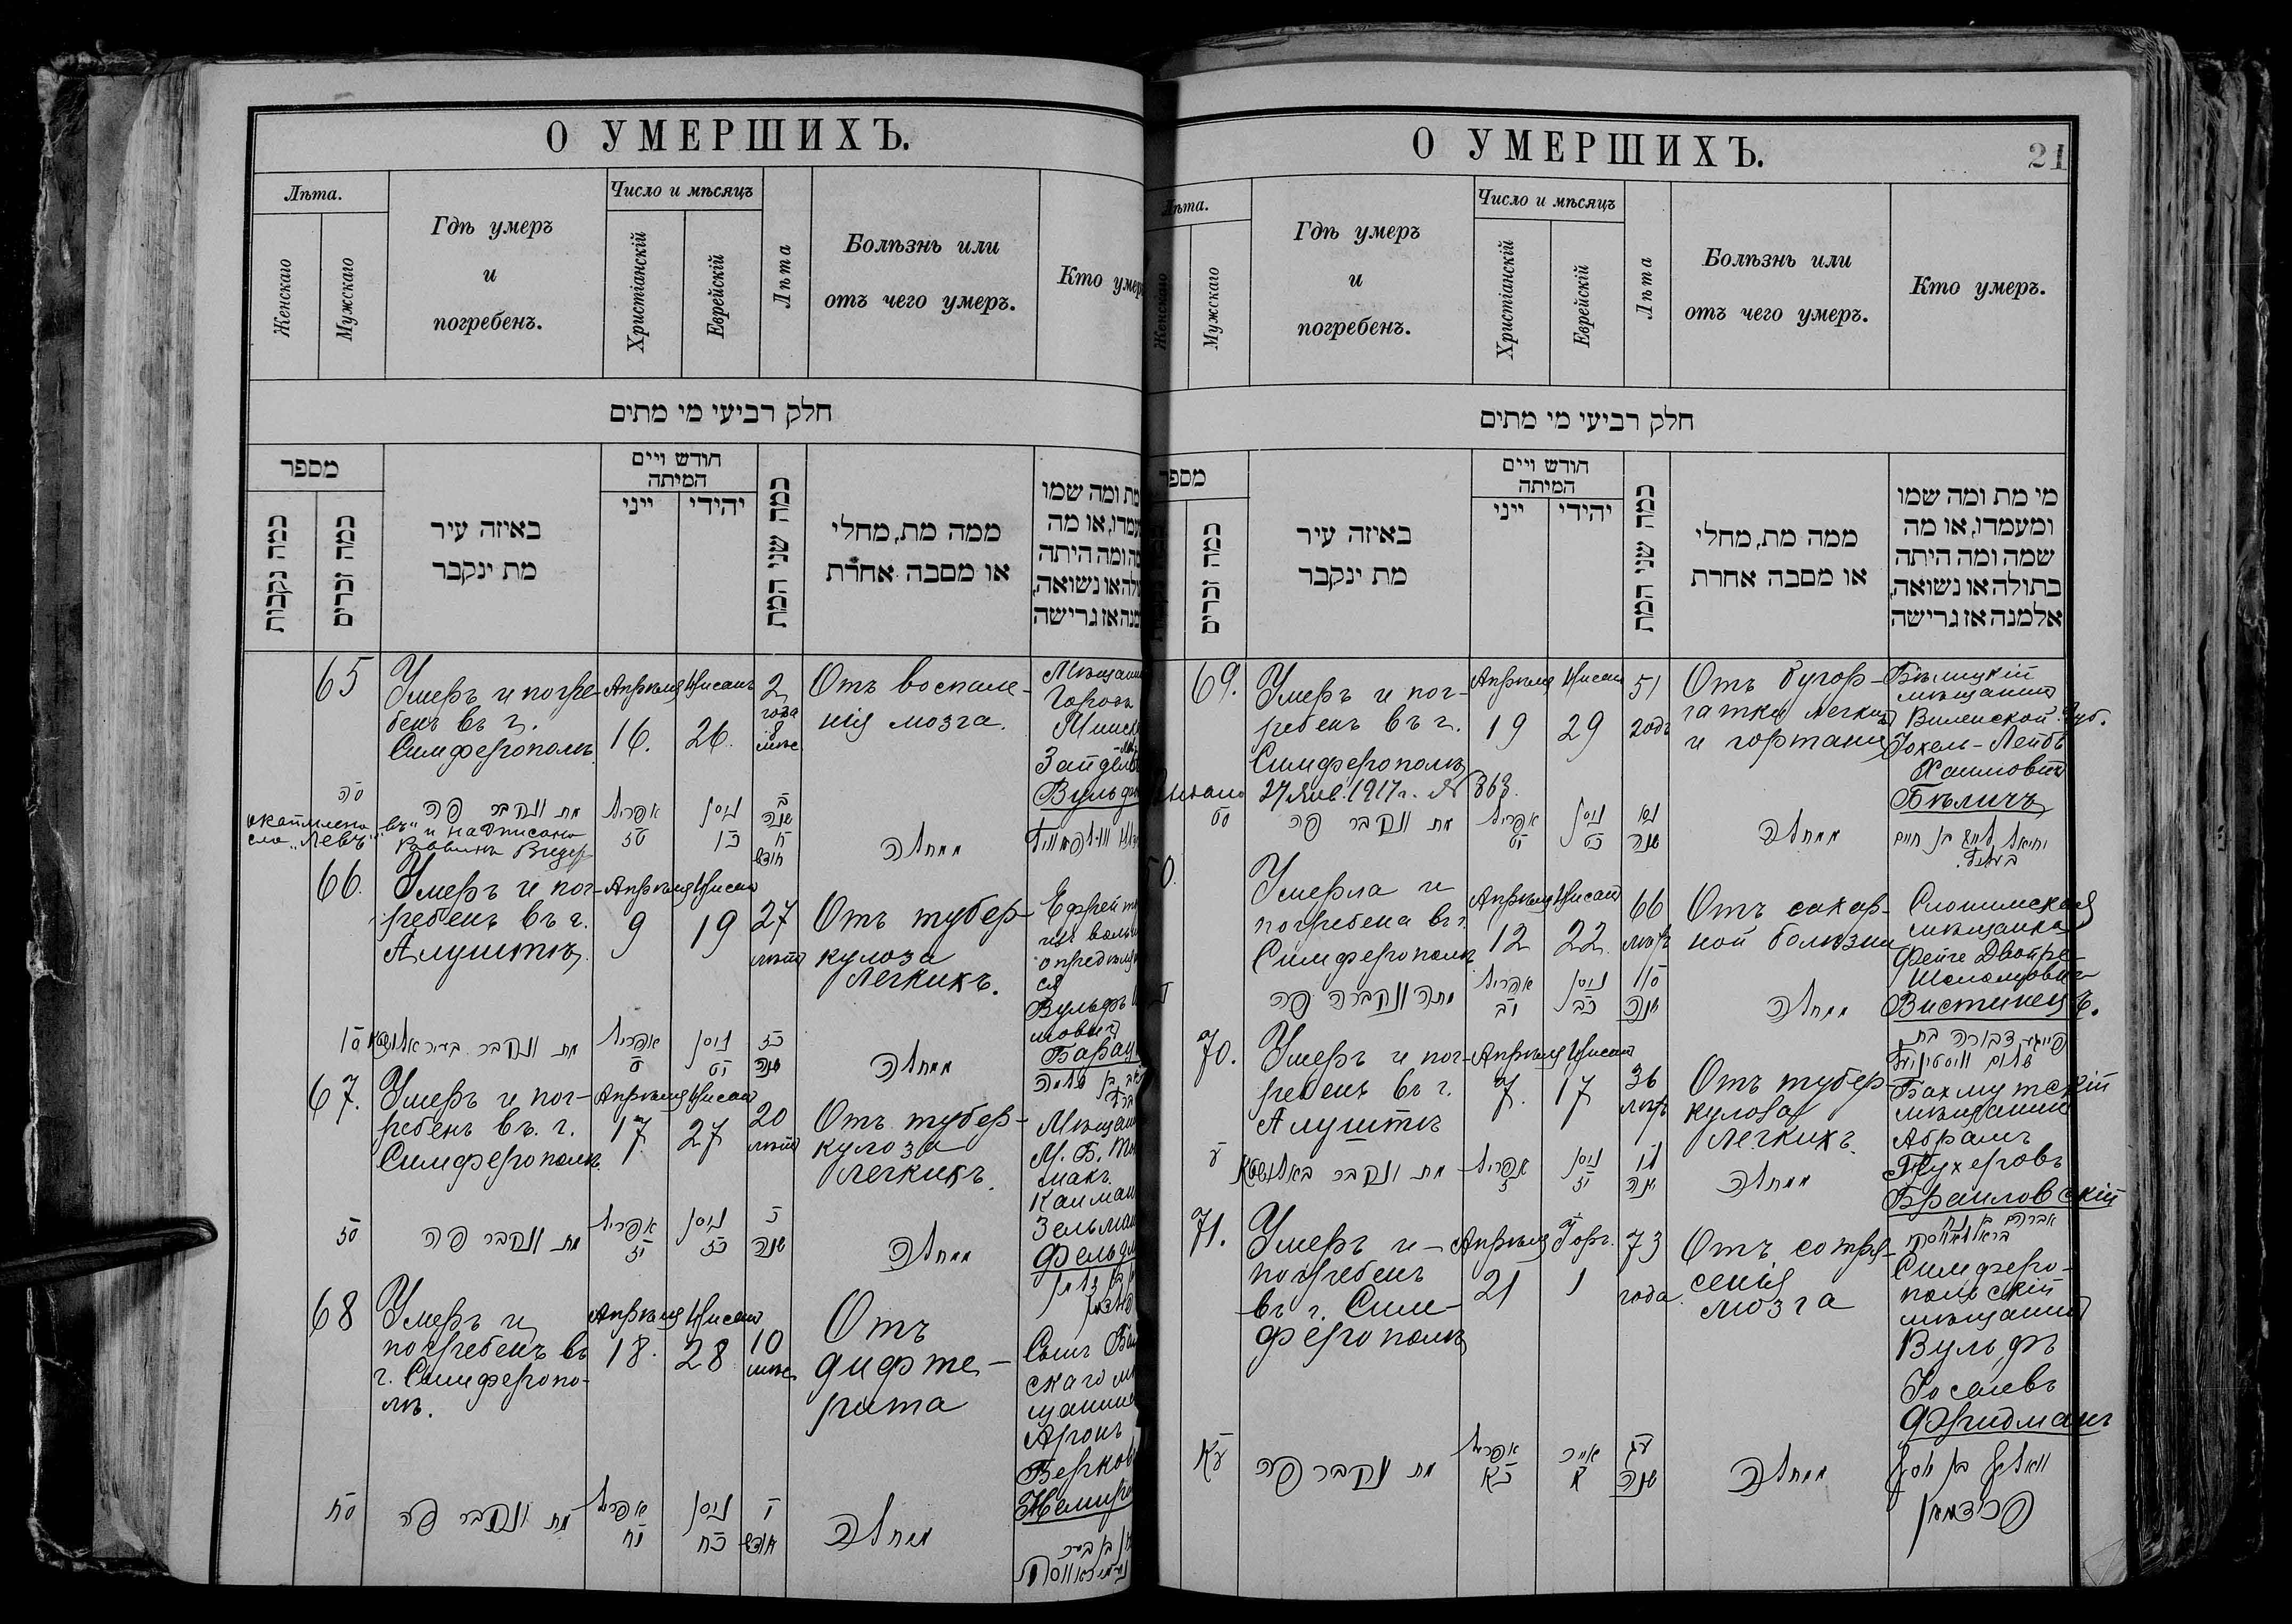 О УМЕРШИХЪ.
Лѣта.
Женскаго
Мужскаго
Гдѣ умеръ
и
погребенъ.
Число и мѣсяцъ
Христіанскій
Еврейскій
Лѣта
Болѣзнь или
отъ чего умеръ.
Кто умер
חלק רביעי מי מתים
מספר
כמה נקבות
כמה זכרים
באיזה עיר
מת ינקבר
חודש ויים
המיתה
ייני
יהידי
כמה שני המת
ממה מת, מחלי
או מסבה אחרת
מת ומה שמו
65
Умеръ и погре-
бенъ въ г.
Симферополѣ
Апрѣля
16.
Нисанъ
26.
2
года
8
мѣс.
Отъ воспале-
нія мозга.
Мѣщани
Минск
Вульф
סה
מת ונקבר פה
אפריל
ניסן
שנה
חודש
ממחלה
66.
Умеръ и пог-
ребенъ въ г.
Алуштѣ
Апрѣля
9
Нисанъ
19
27
лѣтъ
Отъ тубер-
кулоза
легкихъ.
Ефрейт
опредѣля
ся
Вульфъ
מת ונקבר
אפריל
ניסן
שנה
ממחלה
67.
Умеръ и пог-
ребенъ въ г.
Симферополѣ.
Апрѣля
17
Нисанъ
27
20
лѣтъ
Отъ тубер-
кулоза
легкихъ.
Мѣщан
Калман
Зельман
Фельдм
סז
מת ונקבר פה
אפריל
יז
ניסן
כז
כ
שנה
ממחלה
68
Умеръ и
погребенъ въ
г. Симферопо-
лѣ.
Апрѣля
18.
Нисанъ
28
10
мѣс.
Отъ
дифте-
рита
Сынъ
скаго мѣ
щанина
Аронъ
Берков
Немиро
סח
מת ונקבר פה
אפריל
יח
ניסן
כח
י
חודש
ממחלה
О УМЕРШИХЪ.
21
Лѣта.
Женскаго
Мужскаго
Гдѣ умеръ
и
погребенъ.
Число и мѣсяцъ
Христіанскій
Еврейскій
Лѣта
Болѣзнь или
отъ чего умеръ.
Кто умеръ.
חלק רביעי מי מתים
מספר
כמה זכרים
באיזה עיר
מת ינקבר
חודש ויים
המיתה
ייני
יהידי
כמה שני המת
ממה מת, מחלי
או מסבה אחרת
מי מת ומה שמו
ומעמדו, או מה
שמה ומה היתה
בתולה או נשואה,
אלמנה אז גרישה
69.
Умеръ и пог-
ребенъ въ г.
Симферополѣ
27 янв. 1917 г. № 863.
Апрѣля
19
Нисанъ
29
51
годъ
Отъ бугор-
чатки легкихъ
и гортани
мѣщанинъ
Виленской губ.
Іохель-Лейбъ
Хаимовичъ
Бѣличъ
סט
מת ונקבר פה
אפריל
יט
ניסן
כט
נא
שנה
ממחלה
Умерла и
погребена въ г.
Симферополѣ
Апрѣля
12
Нисанъ
22
66
лѣтъ
Отъ сахар-
ной болѣзни
Слонимская
мѣщанка
Фейге Двойре
Шоломовна
Виштинецъ.
מתה ונקברה פה
אפריל
יב
ניסן
כב
סו
שנה
ממחלה
פייגע דבורה בת
70.
Умеръ и пог-
ребенъ въ г.
Алуштѣ
Апрѣля
7.
Нисанъ
17
36
лѣтъ
Отъ тубер-
кулоза
легкихъ.
Бахмутскій
мѣщанинъ
Абрамъ
Браиловскій
ע
מת ונקבר
אפריל
ז
ניסן
יז
לו
שנה
ממחלה
71.
Умеръ и
погребенъ
въ г. Сим-
ферополѣ
Апрѣля
21
1
73
года
Отъ сотря-
сенія
мозга
Симферо-
польскій
мѣщанинъ
Вульфъ
Іосевъ
Фридманъ
עא
מת ונקבר פה
אפריל
כא
אייר
א
עג
שנה
ממחלה
וואלף בן יוסף
פרידמאן